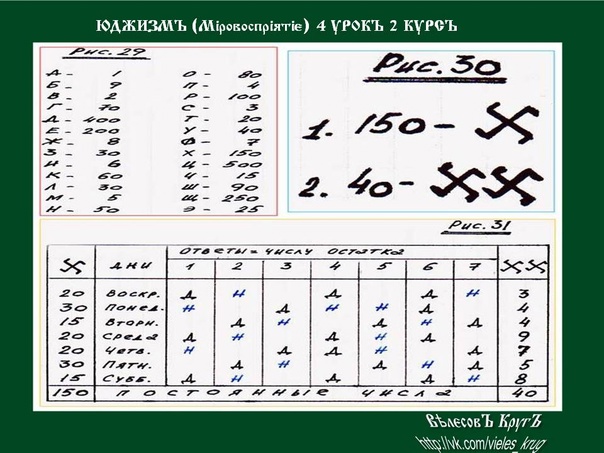 ЮДЖИЗМЪ (Міровоспріятіе) 4 УРОКЪ 2 КУРСЪ
Рис. 29
А - 1 О - 80
Б - 9 П - 4
В - 2 Р - 100
Г - 70 С - 3
Д - 400 Т - 20
Е - 200 У - 40
Ж - 8 Ф - 7
З - 30 Х - 150
И - 6 Ц - 500
К - 60 Ч - 15
Л - 30 Ш - 90
М - 5 Щ - 250
Н - 50 Э - 25
Рис. 30
1. 150 - 卐
2. 40 - 卐卐
Рис. 31
ОТВЕТЫ = ЧИСЛУ ОСТАТКА
卐 ДНИ 1 2 3 4 5 6 7 卐卐
20 ВОСКР. Д Н Д Д Н 3
30 ПОНЕД. Н Д Н Н Д 4
15 ВТОРН. Д Н Д Н Д 4
20 СРЕДА Д Н Д Н Д 9
20 ЧЕТВ. Н Д Д Н Д 7
30 ПЯТН. Д Н Д Н Д 5
15 СУББ. Д Н Д Д Н 8
150 ПОСТОЯННЫЕ ЧИСЛА 40
ВѢлесовЪ КругЪ
http://vk.com/vieles_krug